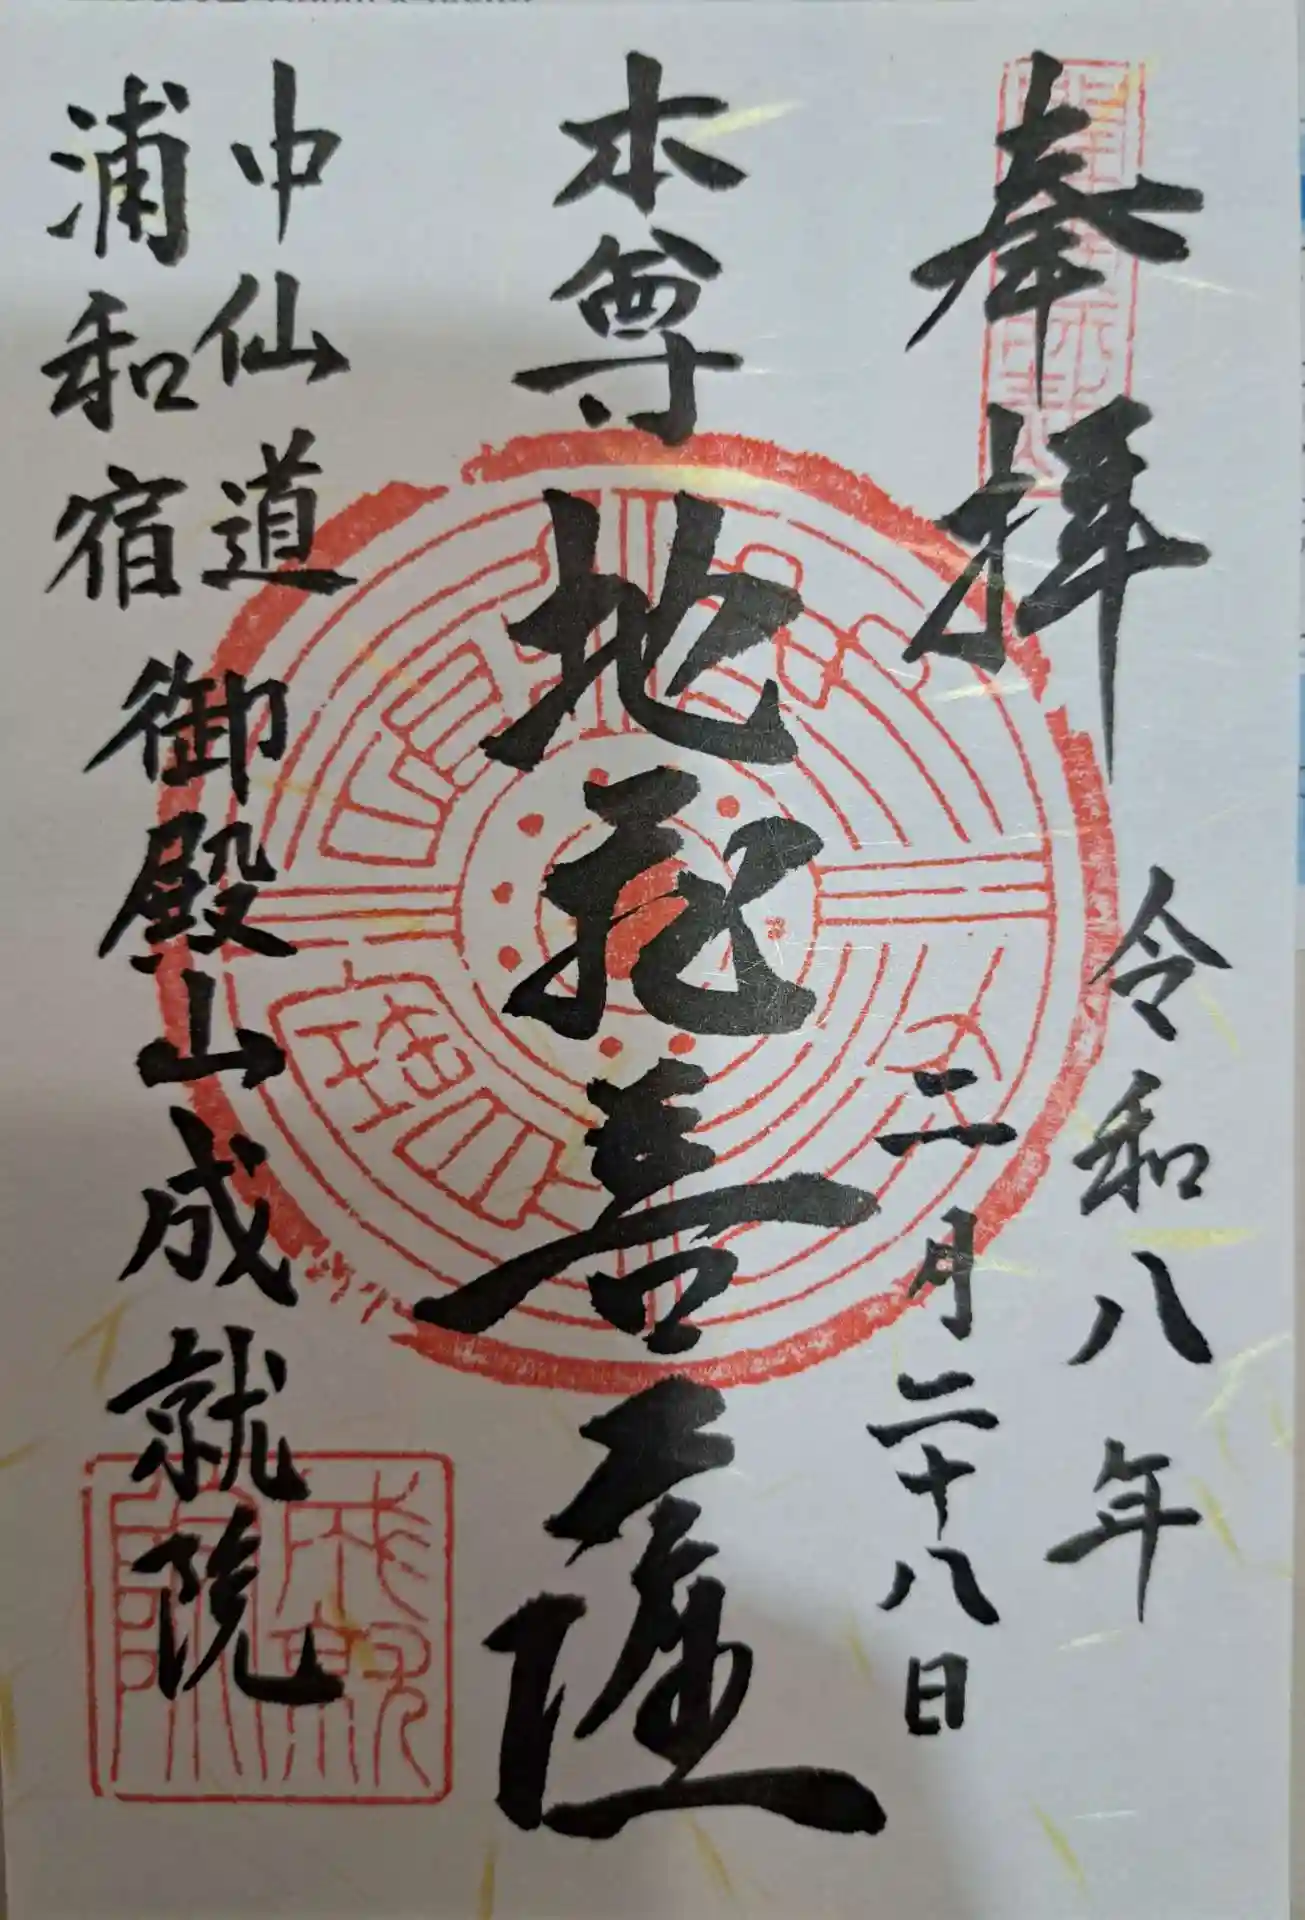 奉拝
令和八年
二月二十八日
本尊
地蔵菩薩
中仙道
浦和宿
御殿山成就院
成就院